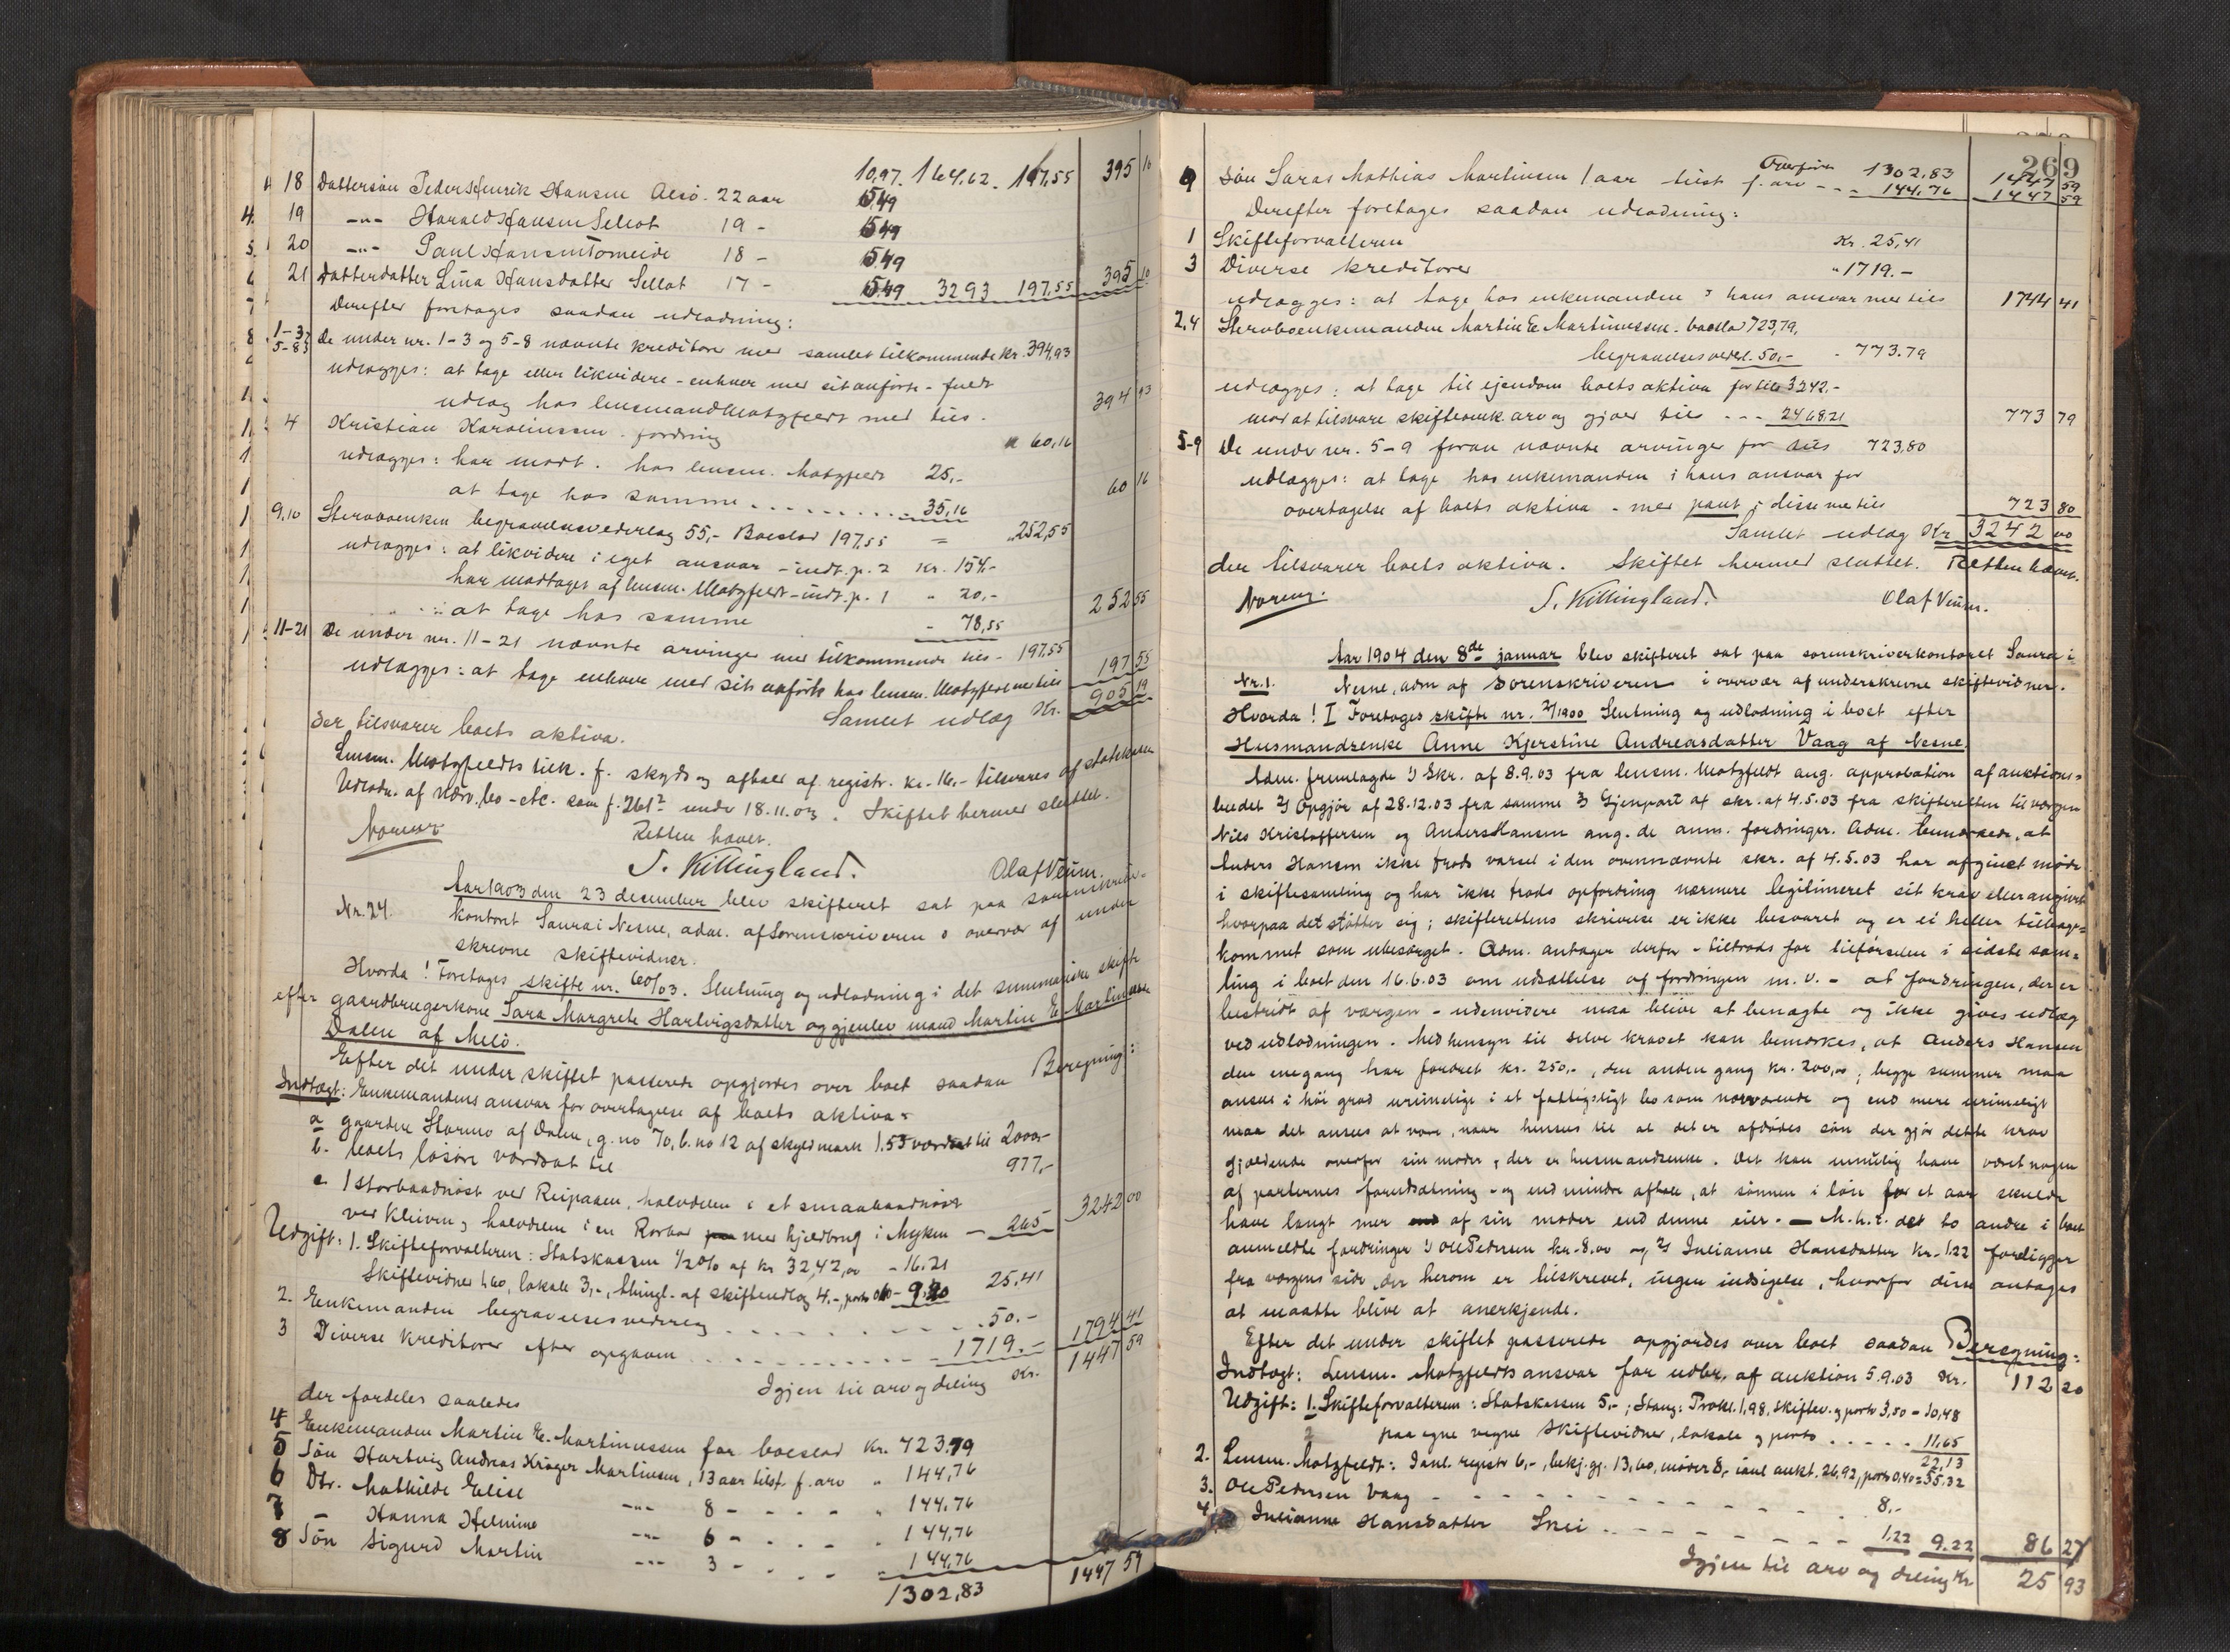 10,97. 164,62. 197,55 395 10
18 Dattersøn Peder Henrik Hansen Alsö. 22 aar 5,49
19 -"- Harald Hansen Selsot 19 - 5,49
20 -"- Paul Hansen Tomeide 18 - 5,49
21 Datterdatter Lina Hansdatter Selsot 17 - 5,49 3293 197,55 395 10
Derefter foretages saadan udlodning:
1-3 5-8 De under nr. 1-3 og 5-8 nævnte kreditorer med samlet tilkommende Kr. 394,93
udlægges: at tage eller likvidere - enhver med sit anførte - fuldt
udlæg hos lensmand Motzfeldt med tils. 394 93
4 Kristian Karolinssen. fordring " 60,16
udlægges: har modt. hos lensm. Motzfeldt 25,-
at tage hos samme 35,16 60 16
9.10 Sterboenken begravelsesvederlag 55,- Boeslod 197,55 = " 252,55
udlægges: at likvidere i eget ansvar - indt. p. 2 kr. 154,-
har modtaget af lensm. Motzfeldt - indt. p. 1 " 20,-
at tage hos samme - 78,55 252 55
11-21 De under nr. 11-21 nævnte arvinger med tilkommende tils - 197,55
udlægges: at tage enhver med sit anførte hos lensm. Motzfeldt med tils 197 55
Samlet udlæg Kr. 905 19
der tilsvarer boets aktiva.
Lensm. Motzfeldts tilk. f. skyds og afhold af registr. kr. 16,- tilsvares af statskassen
Udlodn. af nærv. bo - etc. som f. 261² under 18.11.03. Skiftet hermed sluttet.
Retten hævet.
Noreng S. Killingland. Olaf Veum.
Nr. 24. Aar 1903 den 23 december blev skifteret sat paa sorenskriver-
kontoret Saura i Nesne, adm. af Sorenskriveren i overvær af under
skrevne skiftevidner.
Hvorda! Foretages skifte nr. 60/03. Slutning og udlodning i det summariske skifte
efter gaardbrugerkone Sara Margrete Hartvigsdatter og gjenlev. mand Martin E. Martinussen
Dalen af Melö.
Efter det under skiftet passerede opgjordes over boet saadan Beregning:
Indtægt: Enkemandens ansvar for overtagelse af boets aktiva:
a gaarden Stormo af Dalen, g. no 70, b. no 12 af skyld mark 1.53 værdsat til 2000,-
b. boets løsøre værdsat til 977,-
c. 1 storbaadnøst ved Reipaaen, halvdelen i et smaabaadnøst
ved Kleiven, halvdelen i en Rorbod med hjeldbrug i Myken - 265 3242 00
Udgift: 1. Skifteforvalteren: Statskassen 1/2 % af kr 3242,00 - 16.21
Skiftevidner 1.60, lokale 3,-, thingl. af skifteudlæg 4.-, porto 0.60 - 9.20 25,41
2. Enkemanden begravelsesvederlag 50.-
3 Diverse kreditorer efter opgaven 1719.- 1794 41
Igjen til arv og deling Kr. 1447 59
der fordeles saaledes
4 Enkemanden Martin E. Martinussen for boeslod Kr. 723.79
5 Søn Hartvig Andreas Kröger Martinsen, 13 aar tilst. f. arv " 144,76
6 Dtr. Mathilde Elise -"- 8 - " 144,76
7 - Hanna Helmine -"- 6 - " 144,76
8 Søn Sigurd Martin -"- 3 - " 144,76
1302,83 1447 59
269
Overføres 1302,83 1447 59
9 Søn Saras Mathias Martinsen 1 aar tilst f. arv - - - 144,76 1447 59
Derefter foretages saadan udlodning:
1 Skifteforvalteren Kr. 25,41
3 Diverse kreditorer " 1719.-
udlægges: at tage hos enkemanden i hans ansvar med tils 1744 41
2,4 Sterboenkemanden Martin E. Martinussen. boeslod 723,79,
begravelsesvederl. 50,- - 773.79
udlægges: at tage til ejendom boets aktiva for tils 3242.-
mod at tilsvare skifteomk. arv og gjæld tils - - - 2468.21 773 79
5-9 De under nr. 5-9 foran nævnte arvinger for tils 723,80
udlægges: at tage hos enkemanden i hans ansvar for
overtagelse af boets aktiva - med pant i disse med tils 723 80
Samlet udlæg Kr 3242 00
der tilsvarer boets aktiva. Skiftet hermed sluttet. Retten hævet.
Noreng. S. Killingland. Olaf Veum.
Aar 1904 den 8de januar blev skifteret sat paa sorenskriverkontoret Saura i
Nr. 1. Nesne, adm af Sorenskriveren i overvær af underskrevne skiftevidner.
Hvorda! I Foretages skifte nr. 2/1900 Slutning og udlodning i boet efter
Husmandsenke Anne Kjerstine Andreasdatter Vaag af Nesne.
Adm. fremlagde 1) Skr. af 8.9.03 fra lensm. Motzfeldt ang. approbation af auktions-
budet 2) Opgjør af 28.12.03 fra samme 3) Gjenpart af skr. af 4.5.03 fra skifteretten til værgen
Nils Kristoffersen og Anders Hansen ang. de anm. fordringer. Adm. bemærkede, at
Anders Hansen ikke trods varsel i den ovennævnte skr. af 4.5.03 har afgivet møde
i skiftesamling og har ikke trods opfordring nærmere legitimeret sit krav eller angivet
hvorpaa det støtter sig; skifterettens skrivelse er ikke besvaret og er ei heller tilbage-
kommet som ubesørget. Adm. antager derfor - tiltrods for tilførselen i sidste sam-
ling i boet den 16.6.03 om udsættelse af fordringen m.v. - at fordringen, der er
bestridt af værgen - udenvidere maa blive at benægte og ikke gives udlæg
ved udlodningen. Med hensyn til selve kravet kan bemærkes, at Anders Hansen
den ene gang har fordret kr. 250,-, den anden gang kr. 200,00; begge summer maa
ansees i høi grad urimelige i et fattigsligt bo som nærværende og end mere urimeligt
maa det ansees at være, naar hensees til at det er afdødes søn der gjør dette krav
gjældende overfor sin moder, der er husmandsenke. Det kan umulig have været nogen
af parternes forudsætning - og end mindre aftale, at sønnen i løn for et aar skulde
have langt mer af sin moder end denne eier. — M.h.t. det to andre i boet
anmeldte fordringer 1) Ole Pedersen kr. 8.00 og 2) Julianne Hansdatter Kr. 1.22 foreligger
fra værgens side, der herom er tilskrevet, ingen indsigelse, hvorfor disse antages
at maatte blive at anerkjende.
Efter det under skiftet passerede opgjordes over boet saadan Beregning:
Indtægt: Lensm. Motzfeldts ansvar for udbr. af auktion 5.9.03 Kr. 112 20
Udgift: 1. Skifteforvalteren: Statskassen 5,-; Stang: Prokl. 1,98, skiftev. og porto 3,50 - 10,48
paa egne vegne skiftevidner, lokale og porto 11,65
22,13
2. Lensm. Motzfeldt: Saml. registr 6,-, bekj. gj. 13,60, møder 8,- saml aukt. 26,92, porto 0,40 = 55.32
3. Ole Pedersen Vaag 8,-
4. Julianne Hansdatter Snei 1.22 9.22 86 27
Igjen til arv og deling Kr 25 93